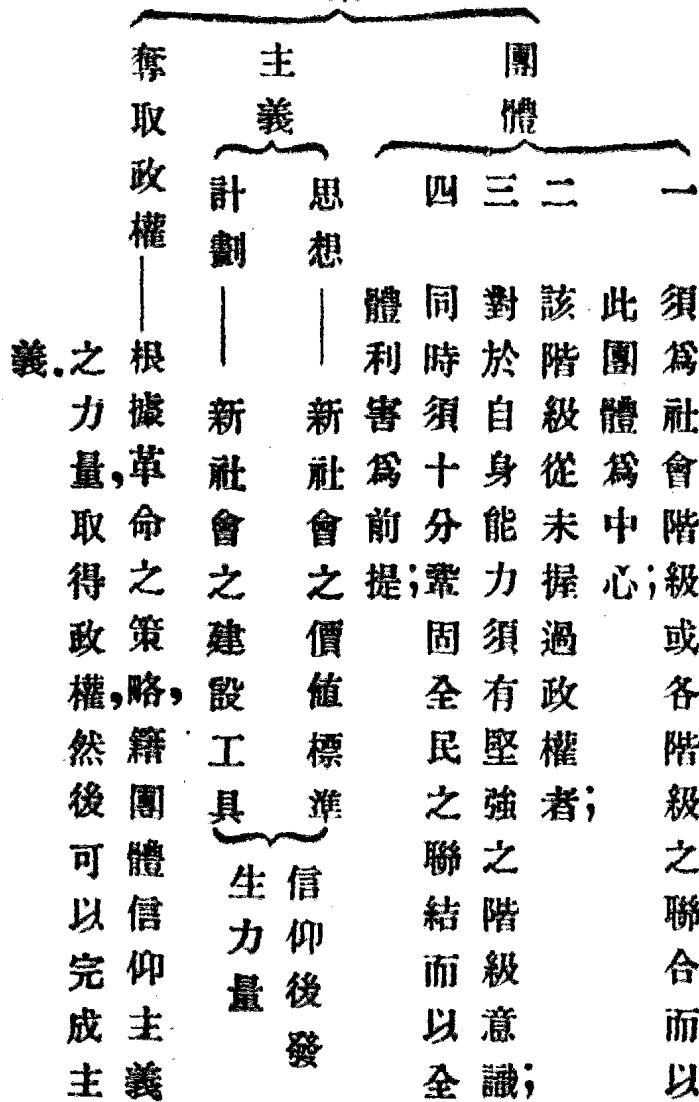 團體
一 須爲社會階級或各階級之聯合而以
此團體爲中心；
二 該階級從未握過政權者；
三 對於自身能力須有堅強之階級意識；
四 同時須十分鞏固全民之聯結而以全
體利害爲前提；
主義
思想——新社會之價値標準
計劃——新社會之建設工具
信仰後發
生力量
奪取政權——根據革命之策略，籍團體信仰主義
之力量，取得政權，然後可以完成主
義．